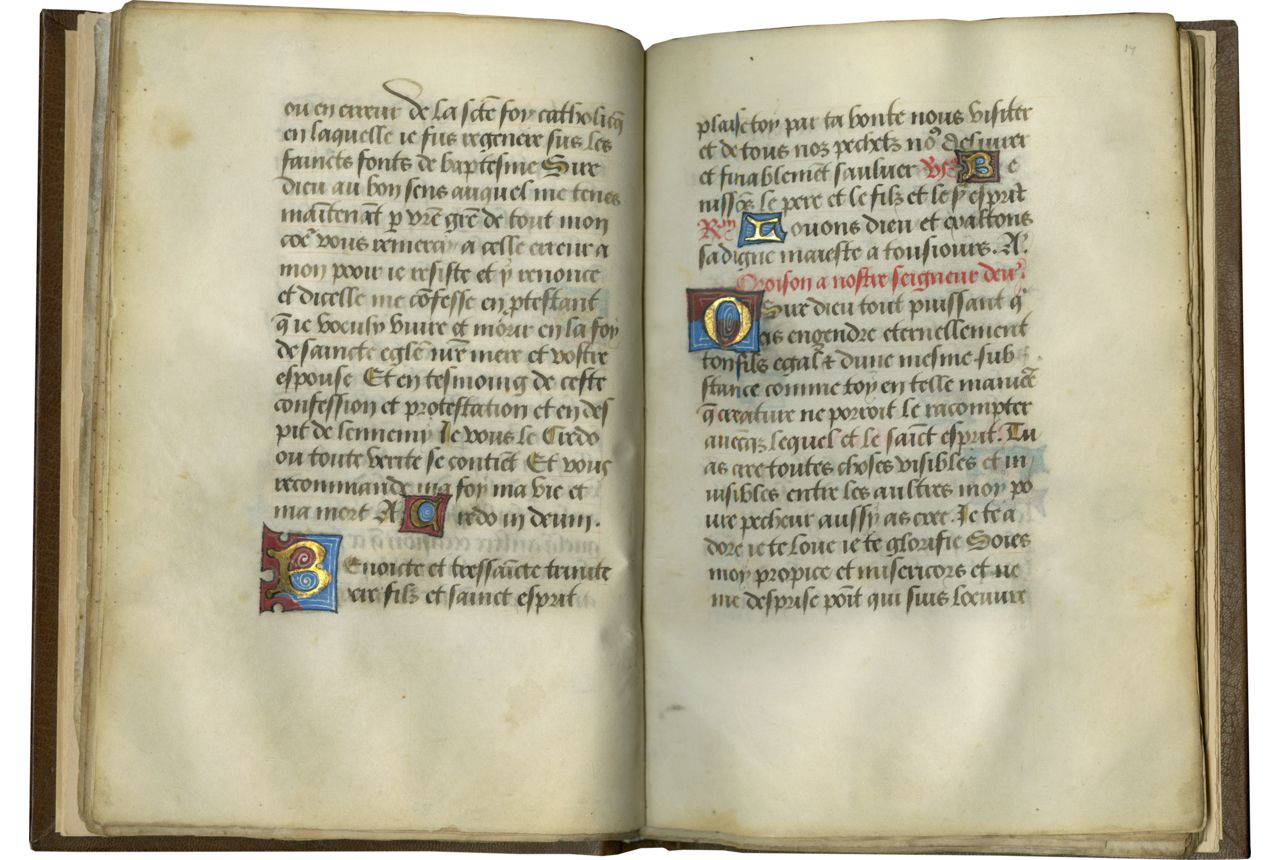 ou en erreur de la scte foy catholicq̄
en laquelle ie fus regenere sus les
saincts fonts de baptesme Sire
dieu au bon sens auquel me tenes
maītenāt p vr̄e gre de tout mon
coe᷑ vous remercy a celle erreur a
mon pooir ie resiste et y renonce
et dicelle me cōfesse en ptestant
q̄ ie voeulx vivre et mōrir en la foy
de saincte eglē nr̄e mere et vostre
espouse Et en tesmoing de ceste
confession et protestation et en des
pit de lennemy Ie vous le Credo
ou toute verite se contiēt Et vous
recommande ma foy ma vie et
ma mort A Credo in deum.
Benoicte et tressaīcte trinite
pere filz et sainct esprit
14
plaise toy par ta bonte nous visiter
et de tous noz pechetz no᷒ delivrer
et finablemēt saulver Be
nissōs le pere et le filz et le sͭ esprit
Louons dieu et exaltons
sa digne maieste a tousiours. A
Oroison a nostre seigneur dieu.
O Sire dieu tout puissant q̄
as engendre eternellement
ton filz egal & dune mesme sub
stance comme toy en telle maniē
q̄ creature ne porroit le racompter
avecq̄z lequel et le saīct esprit. Tu
as cree toutes choses visibles et in
visibles entre les aultres moy po
vre pecheur aussy as cree. Ie te a
dore ie te loue ie te glorifie Soies
moy propice et misericors et ne
me desprise poīt qui suis loeuvre